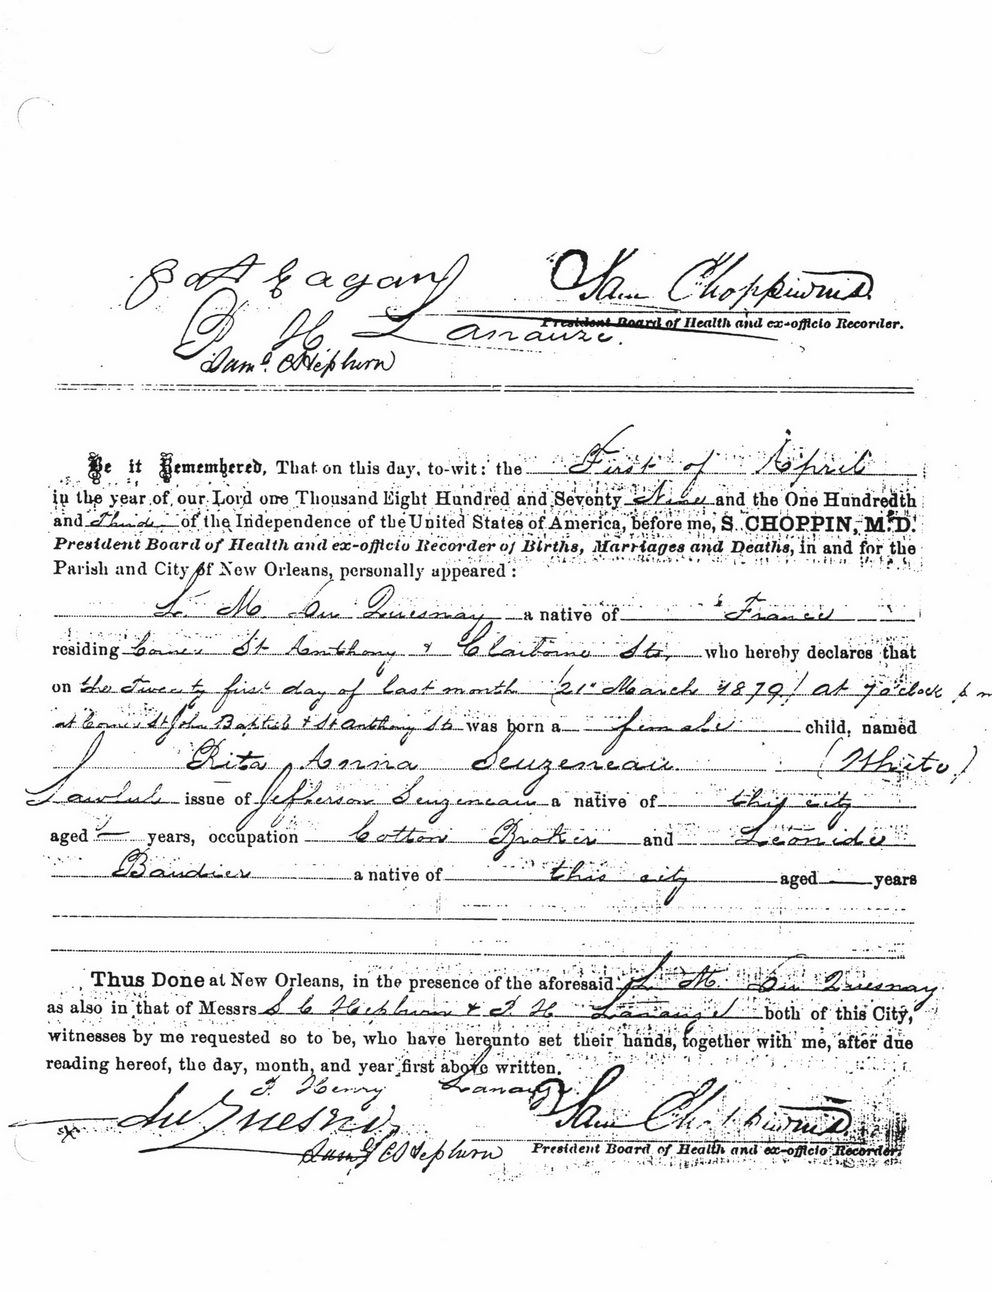 Pat Eagan
Sam Choppin M.D.
President Board of Health and ex-officio Recorder.
H Lanauze.
Saml C Hepburn
Be it Remembered, That on this day, to-wit: the First of April
in the year of our Lord one Thousand Eight Hundred and Seventy Nine and the One Hundredth
and Third of the Independence of the United States of America, before me, S. CHOPPIN, M.D.
President Board of Health and ex-officio Recorder of Births, Marriages and Deaths, in and for the
Parish and City of New Orleans, personally appeared:
L. M. Du Quesnay a native of France
residing Corner St Anthony & Claiborne Sts. who hereby declares that
on the Twenty first day of last month (21st March 1879) at 7 o'clock p m
at Corner St John Baptist & St Anthony Sts was born a female child, named
Rita Anna Seuzeneau. (White)
Lawful issue of Jefferson Seuzeneau a native of this city
aged — years, occupation Cotton Broker and Leonide
Baudier a native of this city aged — years
Thus Done at New Orleans, in the presence of the aforesaid L. M. Du Quesnay
as also in that of Messrs S C Hepburn & H Lanauze both of this City,
witnesses by me requested so to be, who have hereunto set their hands, together with me, after due
reading hereof, the day, month, and year first above written.
Henry Lanauze
Du Quesnay
Sam Choppin M.D.
Saml C Hepburn
President Board of Health and ex-officio Recorder.